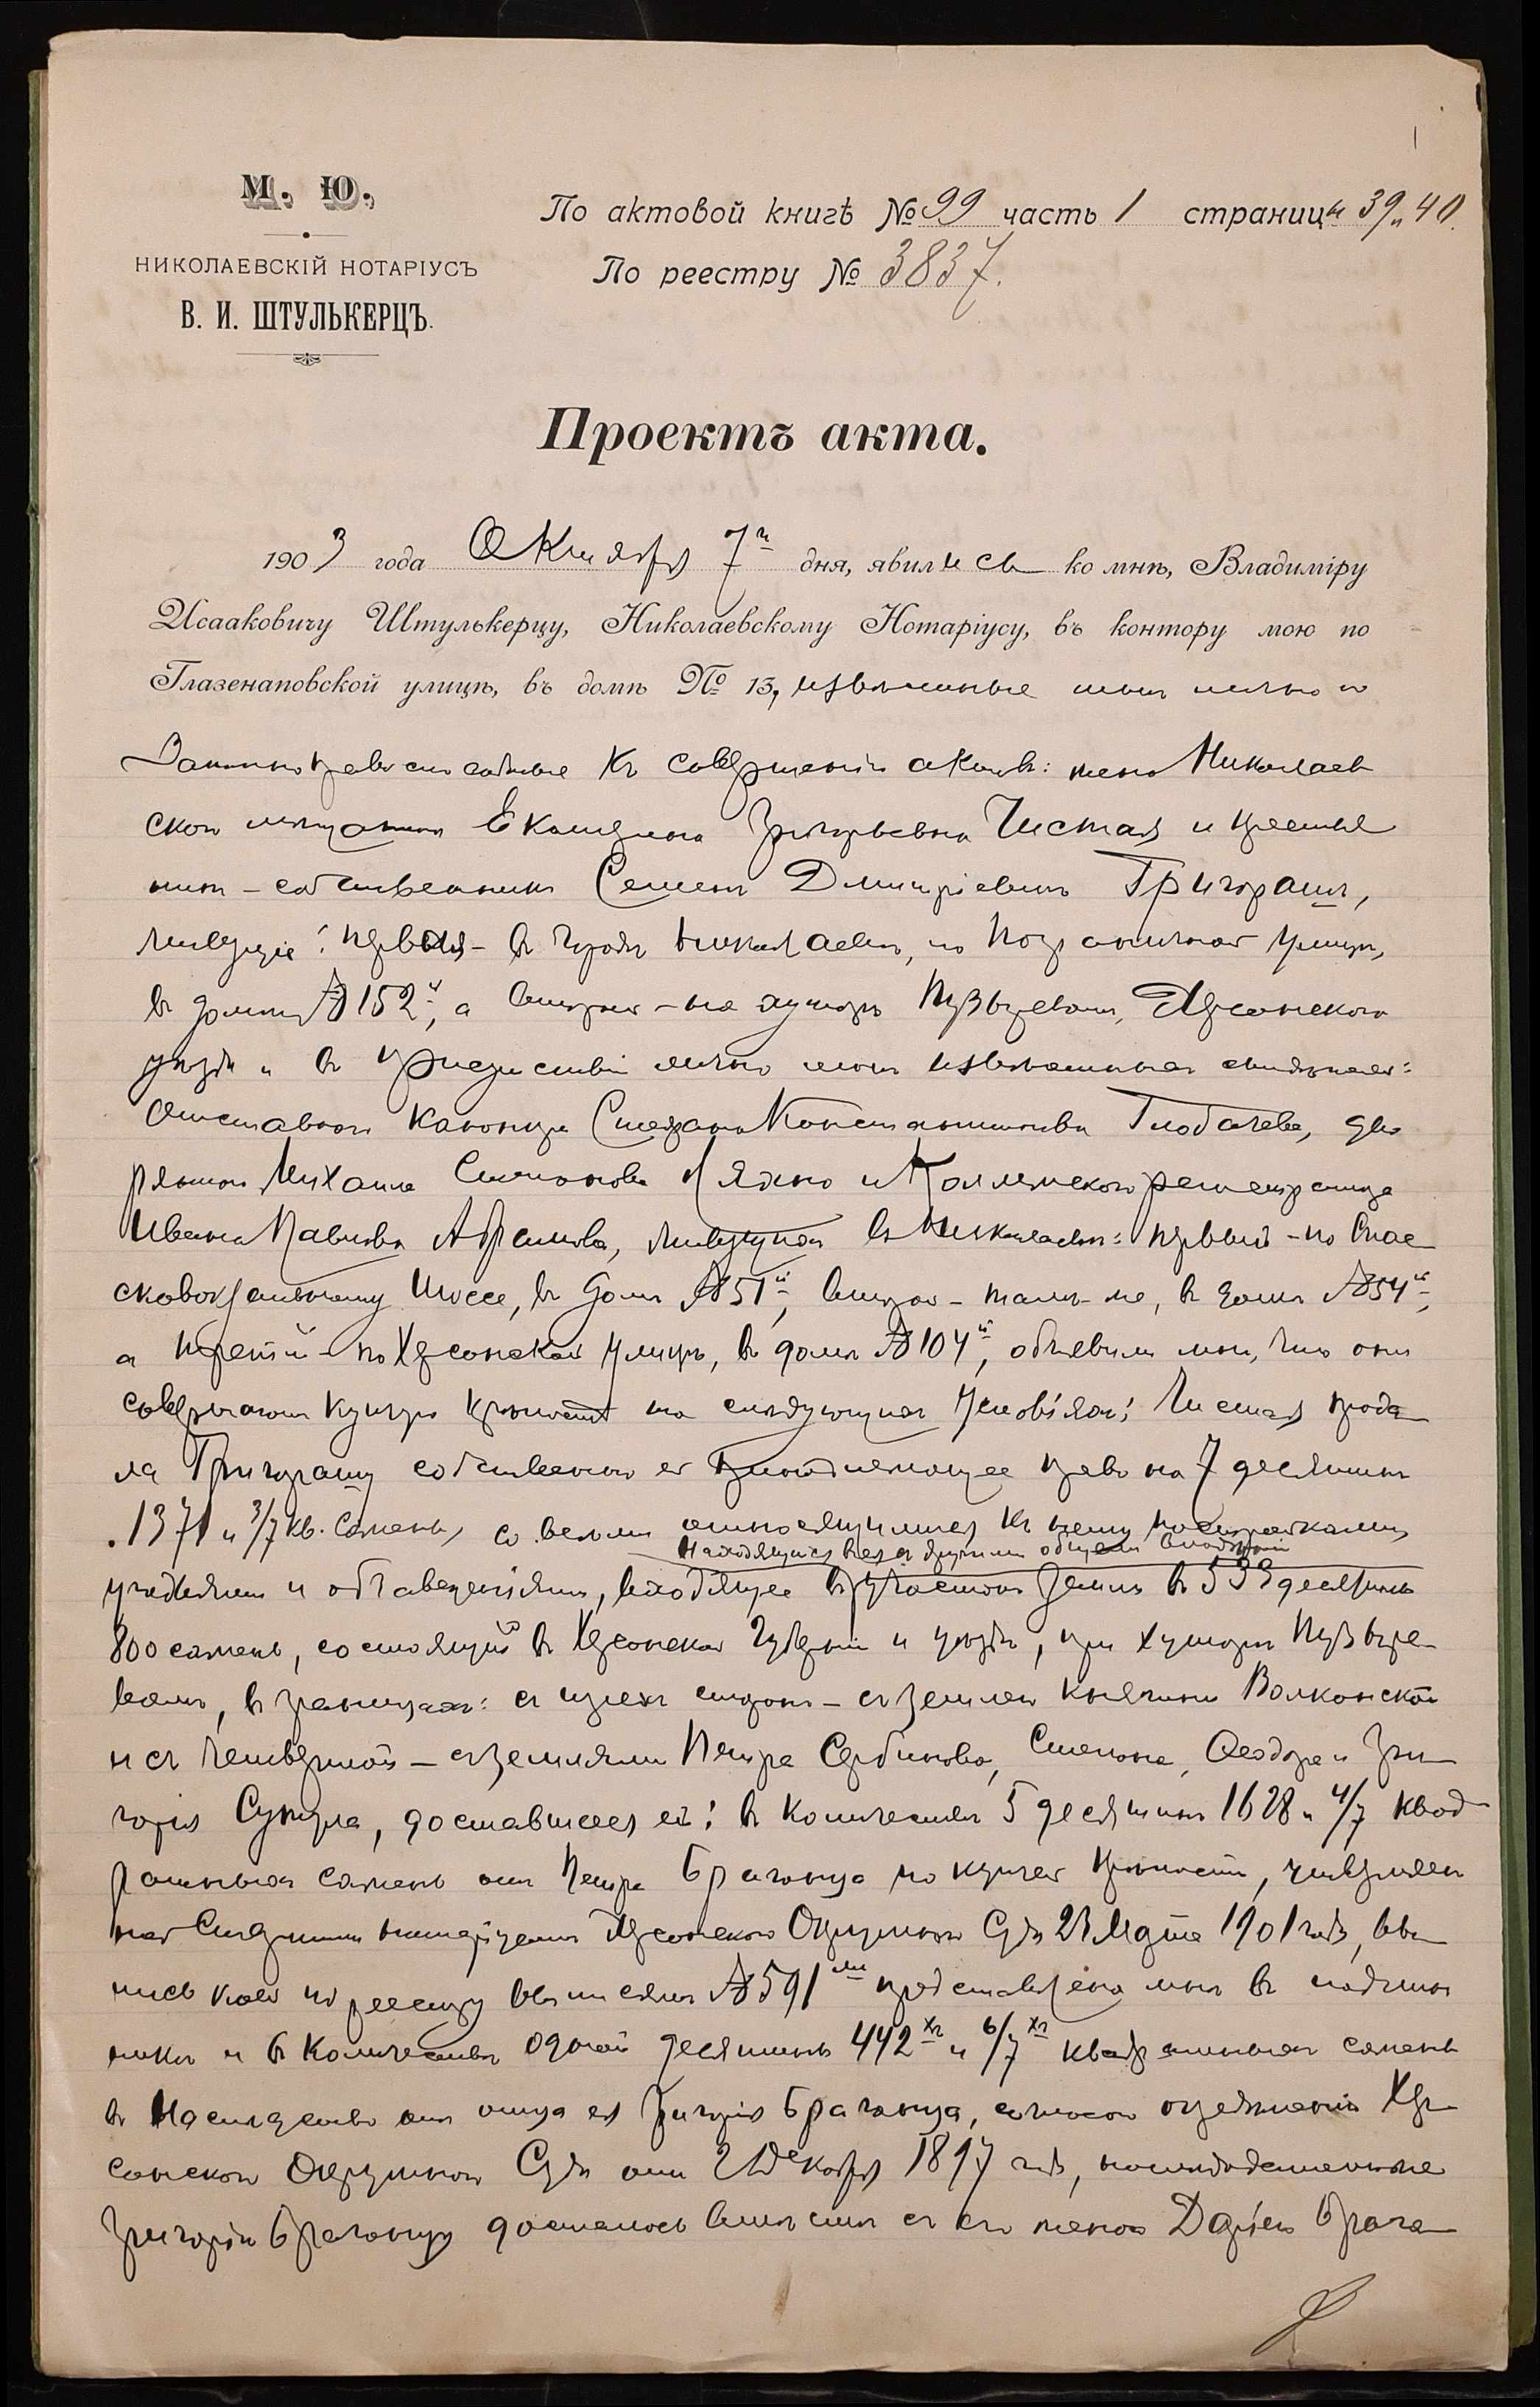 М. Ю.
НИКОЛАЕВСКІЙ НОТАРІУСЪ
В. И. ШТУЛЬКЕРЦЪ.
По актовой книгѣ № 99 часть 1 страницы 39 и 40.
По реестру № 3837.
Проектъ акта.
1903 года Октября 7го дня, явились ко мнѣ, Владиміру
Исааковичу Штулькерцу, Николаевскому Нотаріусу, въ контору мою по
Глазенаповской улицѣ, въ домѣ № 13, извѣстные мнѣ лично и
законно правоспособные къ совершенію актовъ: жена Николаев
скаго мѣщанина Екатерина Григорьевна Чистая и крестья
нинъ-собственникъ Семенъ Дмитріевичъ Григорашъ,
живущіе: первая - въ городѣ Николаевѣ, по Пограничной улицѣ,
въ домѣ № 152й, а второй - на хуторѣ Пузыревомъ, Херсонскаго
уѣзда и въ присутствіи лично мнѣ извѣстныхъ свидѣтелей:
отставного канонира Степана Константинова Глобачева, дво
рянина Михаила Степанова Ляхно и Коллежскаго регистратора
Ивана Павлова Абрамова, живущихъ въ Николаевѣ: первый - по Спас
сковокзальному шоссе, въ домѣ № 51й, второй - тамъ-же, въ домѣ № 54й,
а третій - по Херсонской улицѣ, въ домѣ № 104й, объявили мнѣ, что они
совершаютъ купчую крѣпость на слѣдующихъ условіяхъ: Чистая прода
ла Григорашу собственно ей принадлежащее право на 7 десятинъ
1371 и 3/7 кв. сажень, со всѣми относящимися къ нему постройками,
находящуюся въ ея съ другими общемъ владѣніи
угодьями и обзаведеніями, входящее въ участокъ земли въ 533 десятины
800 сажень, состоящій въ Херсонской губерніи и уѣздѣ, при хуторѣ Пузыре
вомъ, въ границахъ: съ трехъ сторонъ - съ землею княгини Волконской
и съ четвертой - съ землями Петра Сербинова, Степана, Ѳеодора и Гри
горія Сукура, доставшееся ей: въ количествѣ 5 десятинъ 1628 и 4/7 квад
ратныхъ сажень отъ Петра Браганца по купчей крѣпости, утвержден
ной Старшимъ нотаріусомъ Херсонскаго Окружнаго Суда 2 Марта 1901 года, вы
пись коей по реестру выписана № 591 представлена мнѣ въ подлин
никѣ и въ количествѣ одной десятины 442хъ и 6/7хъ квадратныхъ сажень
въ наслѣдство отъ отца ея Григорія Браганца, согласно опредѣленія Хер
сонскаго Окружнаго Суда отъ 2 Декабря 1897 года, наслѣдодателю же
Григорію Браганцу досталось вмѣстѣ съ его женою Дарьею Брага